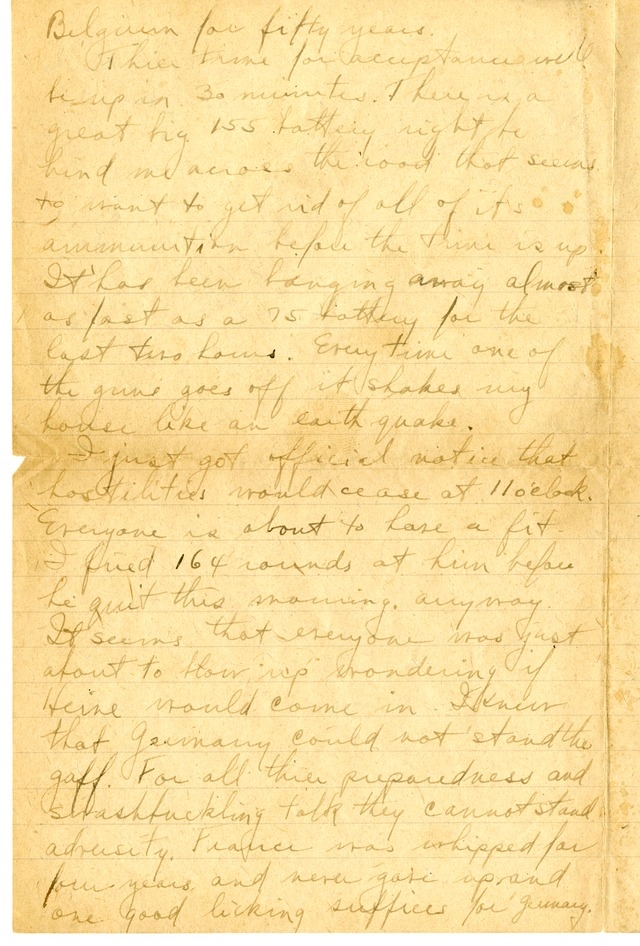 Belgium for fifty years.
Thier time for acceptance will
be up in 30 minutes. There is a
great big 155 battery right be
hind me across the road that seems
to want to get rid of all of it's
ammunition before the time is up.
It has been banging away almost
as fast as a 75 battery for the
last two hours. Every time one of
the guns goes off it shakes my
house like an earth quake.
I just got official notice that
hostilities would cease at 11 o'clock.
Everyone is about to have a fit.
I fired 164 rounds at him before
he quit this morning. anyway.
It seems that everyone was just
about to blow up wondering if
Heine would come in. I knew
that Germany could not stand the
gaff. For all thier preparedness and
swashbuckling talk they cannot stand
adversity. France was whipped for
four years and never gave up and
one good licking suffices for Germany.